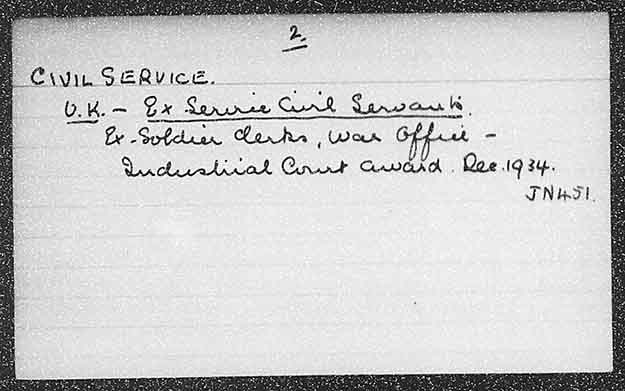 2.
CIVIL SERVICE.
U.K. - Ex Service Civil Servants.
Ex-Soldier Clerks, War Office -
Industrial Court award. Dec. 1934.
JN451.